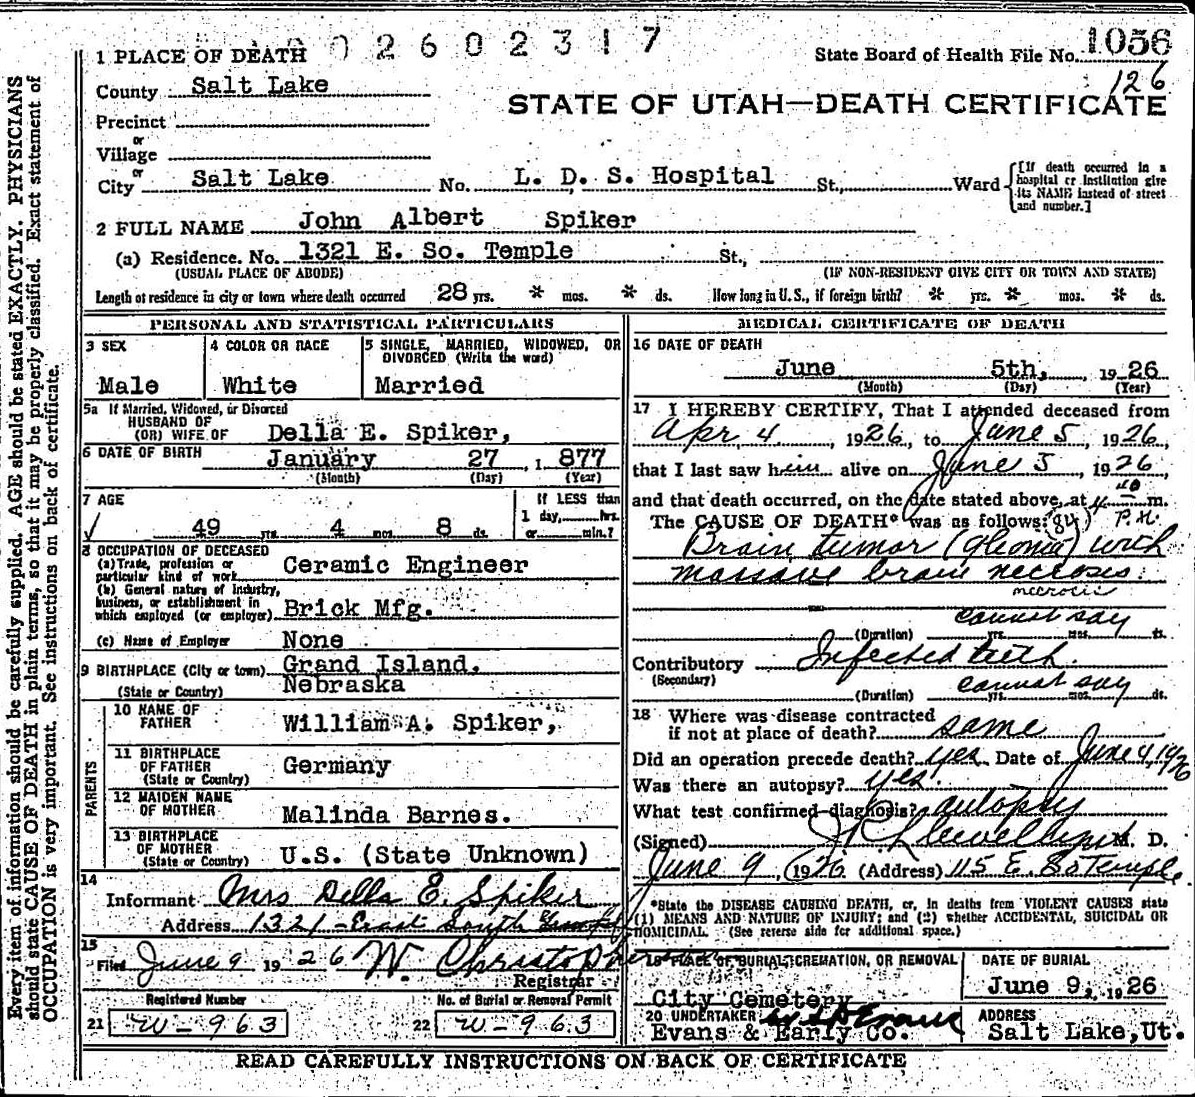 2602317
1 PLACE OF DEATH
State Board of Health File No. 1056
126
County Salt Lake
STATE OF UTAH—DEATH CERTIFICATE
Precinct
or
Village
or
City Salt Lake No. L. D. S. Hospital St., Ward
[If death occurred in a hospital or Institution give its NAME instead of street and number.]
2 FULL NAME John Albert Spiker
(a) Residence. No. 1321 E. So. Temple St.,
(USUAL PLACE OF ABODE) (IF NON-RESIDENT GIVE CITY OR TOWN AND STATE)
Length of residence in city or town where death occurred 28 yrs. * mos. * ds. How long in U. S., if foreign birth? * yrs. * mos. * ds.
PERSONAL AND STATISTICAL PARTICULARS
3 SEX
Male
4 COLOR OR RACE
White
5 SINGLE, MARRIED, WIDOWED, OR DIVORCED (Write the word)
Married
5a If Married, Widowed, or Divorced
HUSBAND OF
(OR) WIFE OF Della E. Spiker,
6 DATE OF BIRTH January 27, 1877
(Month) (Day) (Year)
7 AGE
49 yrs. 4 mos. 8 ds.
If LESS than
1 day, hrs.
or min.?
8 OCCUPATION OF DECEASED
(a) Trade, profession or
particular kind of work Ceramic Engineer
(b) General nature of Industry,
business, or establishment in
which employed (or employer) Brick Mfg.
(c) Name of Employer None
9 BIRTHPLACE (City or town) Grand Island,
(State or Country) Nebraska
PARENTS
10 NAME OF
FATHER William A. Spiker,
11 BIRTHPLACE
OF FATHER
(State or Country) Germany
12 MAIDEN NAME
OF MOTHER Malinda Barnes.
13 BIRTHPLACE
OF MOTHER
(State or Country) U.S. (State Unknown)
14
Informant Mrs Della E. Spiker
Address 1321 - East South Temple
15
Filed June 9 1926 W. Christopherson
Registrar
Registered Number
21 W-963
No. of Burial or Removal Permit
22 W-963
MEDICAL CERTIFICATE OF DEATH
16 DATE OF DEATH
June 5th, 1926
(Month) (Day) (Year)
17 I HEREBY CERTIFY, That I attended deceased from
Apr 4, 1926, to June 5, 1926,
that I last saw him alive on June 5, 1926
and that death occurred, on the date stated above, at 4 40 m.
P.M.
The CAUSE OF DEATH* was as follows: (84)
Brain tumor (glioma) with
massave brain necrosis.
necrosis
cannot say
(Duration) yrs. mos. ds.
Contributory Infected teeth.
(Secondary) cannot say
(Duration) yrs. mos. ds.
18 Where was disease contracted
if not at place of death? same
Did an operation precede death? yes Date of June 4, 1926
Was there an autopsy? yes.
What test confirmed diagnosis? autopsy
(Signed) Llewellyn M. D.
June 9, 1926 (Address) 115 E. So Temple.
*State the DISEASE CAUSING DEATH, or, in deaths from VIOLENT CAUSES state
(1) MEANS AND NATURE OF INJURY; and (2) whether ACCIDENTAL, SUICIDAL OR
HOMICIDAL. (See reverse side for additional space.)
19 PLACE OF BURIAL, CREMATION, OR REMOVAL
City Cemetery
DATE OF BURIAL
June 9, 1926
20 UNDERTAKER
Evans & Early Co.
ADDRESS
Salt Lake, Ut.
READ CAREFULLY INSTRUCTIONS ON BACK OF CERTIFICATE
Every item of information should be carefully supplied. AGE should be stated EXACTLY. PHYSICIANS
should state CAUSE OF DEATH in plain terms, so that it may be properly classified. Exact statement of
OCCUPATION is very important. See instructions on back of certificate.